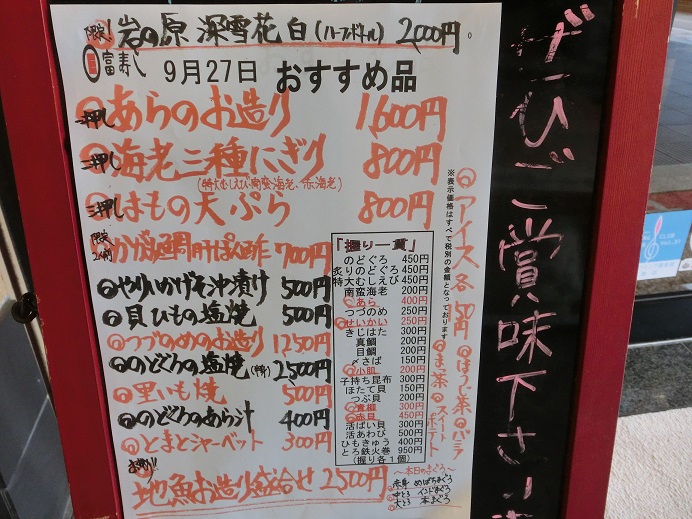 限定! 岩の原 深雪花 白(ハーフボトル) 2,000円。
富寿し 9月27日 おすすめ品
一押し あらのお造り 1,600円
二押し 海老三種にぎり 800円
(特大むしえび・南蛮海老・赤海老)
三押し はもの天ぷら 800円
限定 鯛肝ぽん酢 700円
やりいかげそ沖漬け 500円
貝ひもの塩焼 500円
つづのめのお造り 1250円
のどぐろの塩焼(半身) 2,500円
里いも焼 500円
のどぐろのあら汁 400円
とまとシャーベット 300円
地魚お造り盛合せ 2,500円
「握り一貫」
のどぐろ 450円
炙りのどぐろ 450円
特大むしえび 450円
南蛮海老 200円
あら 400円
つづのめ 250円
せいかい 250円
きじはた 300円
真鯛 200円
目鯛 200円
〆さば 150円
小肌 200円
子持ち昆布 300円
ほたて貝 150円
つぶ貝 200円
青柳 300円
赤貝 450円
活ばい貝 300円
活あわび 500円
ひもきゅう 400円
とろ鉄火巻 950円
(握り各1個)
~本日のまぐろ~
赤身 めばちまぐろ
中とろ インドまぐろ
大とろ 本まぐろ
※表示価格はすべて税別の金額となっております
アイス各150円
ほうじ茶
バニラ
まっ茶
スイートポテト
ぜひご賞味下さいませ